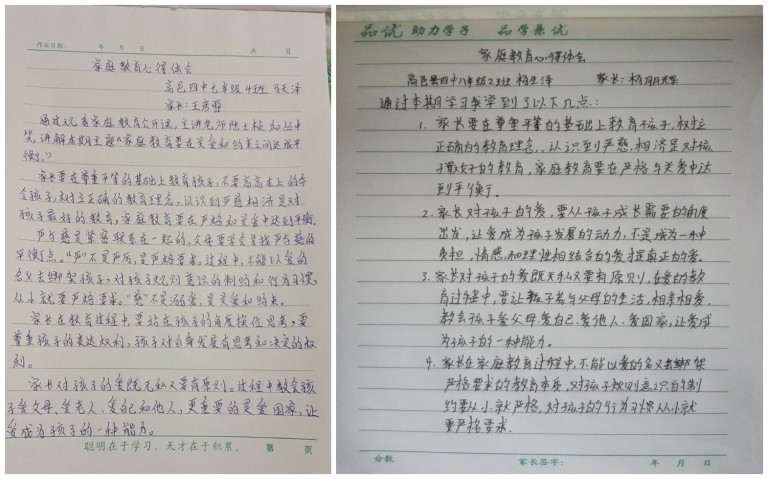 作业日期： 年 月 日 共 页
家庭教育心得体会
高邑四中七年级4班
家长：王彦
通过观看家庭教育公开课，主讲老师陈士
讲解本期主题"家庭教育要在关爱和约束之间达成平
衡。"
家长要在尊重平等的基础上教育孩子，不要高高在上的命
令孩子，树立正确的教育理念，认识到严慈相济是对
孩子最好的教育，家庭教育要在严格和关爱中达到平衡。
严与慈是紧密联系在一起的，父母要学会寻找严与慈的
平衡点。"严"不是严厉，是严格要求。过程中，不能以爱的
名义去绑架孩子，对孩子规则意识的制约和行为习惯
从小就要严格要求。"慈"不是溺爱，是关爱和约束。
家长在教育过程中要站在孩子的角度换位思考，要
尊重孩子的表达权利，孩子对自身发展有思考和决定的权
利。
家长对孩子的爱既无私又要有原则。过程中教会孩
子爱父母，爱老人，爱自己和他人，更重要的是爱国家，让
爱成为孩子的一种能力。
聪明在于学习，天才在于积累。 第 页
品优 助力学子 品学兼优
家庭教育心得体会
高邑县四中八年级2班 杨生泽 家长：杨朋
通过本期学习我学到了以下几点：
1. 家长要在尊重平等的基础上教育孩子，树立
正确的教育理念，认识到严慈相济是对孩
子最好的教育，家庭教育要在严格与关爱中达
到平衡。
2. 家长对孩子的爱，要从孩子成长需要的角度
出发，让爱成为孩子发展的动力，不是成为一种
负担，情感和理性相结合的爱才是真正的爱。
3. 家长对孩子的爱既无私又要有原则，在爱的教
育过程中，要让孩子学与父母的生活，相亲相爱。
教会孩子爱父母、爱自己、爱他人、爱国家，让爱成
为孩子的一种能力。
4. 家长在家庭教育过程中，不能以爱的名义去绑架
严格要求的教育本质，对孩子规则意识的制
约要从小就严格，对孩子的行为习惯从小就
要严格要求。
分数 家长签字： 年 月 日